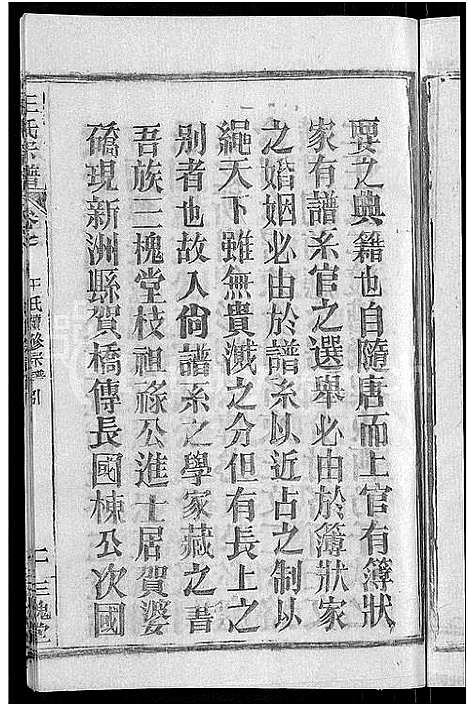 要之典籍也自隨唐而上官有簿狀
家有譜系官之選舉必由於簿狀家
之婚姻必由於譜系以近占之制以
繩天下雖無貴滅之分但有長上之
别者也故人尙譜系之學家藏之書
吾族三槐堂枝祖祿公進士居賀婆
礄現新洲縣賀橋傳長國棟公次國
王氏宗譜
王氏續修宗譜引
二
三槐堂